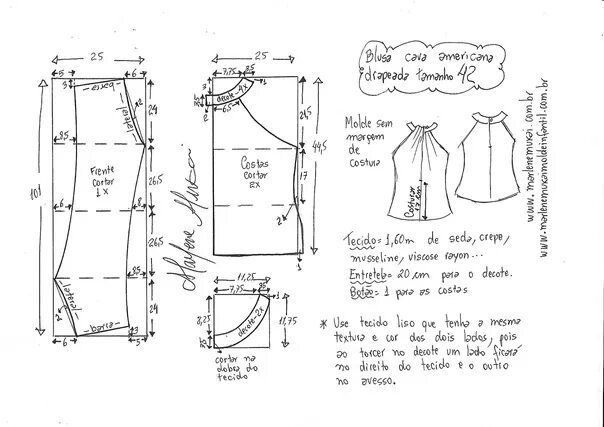 Blusa cava americana
drapeada tamanho 42
25
5
6
3
barra
lateral
2
24
8,5
Frente
cortar
1x
101
26,5
6
8
26,5
8,5
lateral
2
24
barra
3
6
5
Marlene Mukai
25
7,75
3,5
3
1
decote-4x
6,5
2
24,5
44,5
Costas
cortar
2x
17
2
1
11,25
7,75
3,5
1
8,25
decote-2x
11,75
cortar na
dobra do
tecido
Molde sem
margem
de
costura
Costurar
17 cm
www.marlenemukai.com.br
www.marlenemukaimoldeinfantil.com.br
Tecido= 1,60m de seda, crepe,
musseline, viscose rayon...
Entretela= 20 cm para o decote.
Botão= 1 para as costas
* Use tecido liso que tenha a mesma
textura e cor dos dois lados, pois
ao torcer no decote um lado ficará
no direito do tecido e o outro
no avesso.